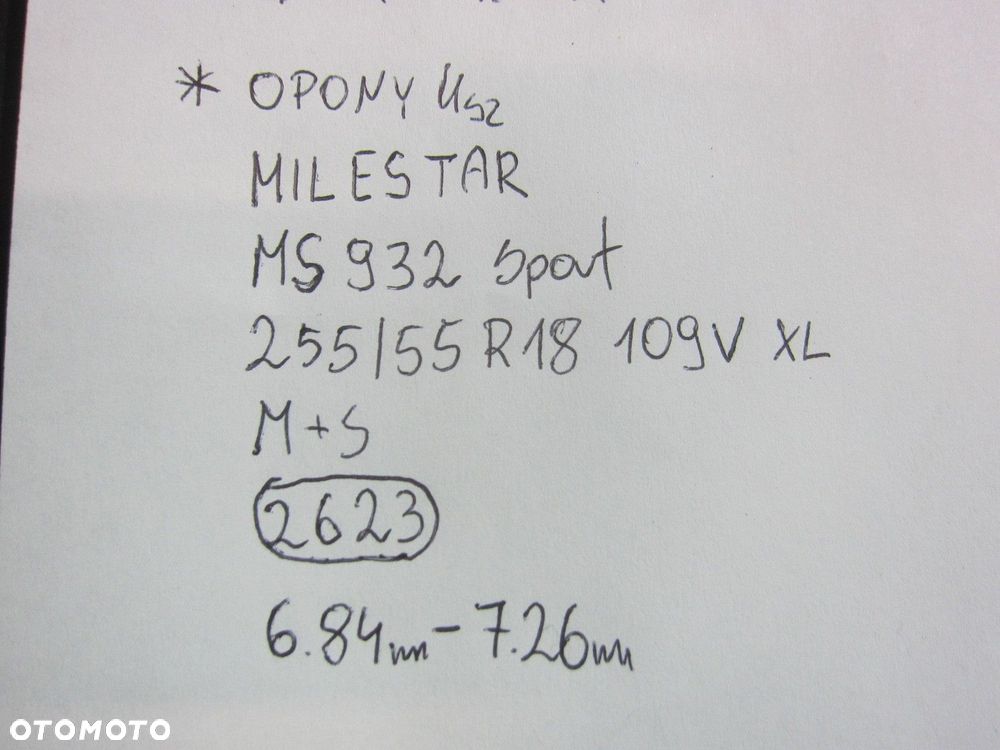 * OPONY 4sz
MILESTAR
MS 932 Sport
255/55 R18 109V XL
M+S
2623
6.84mm - 7.26mm
OTOMOTO